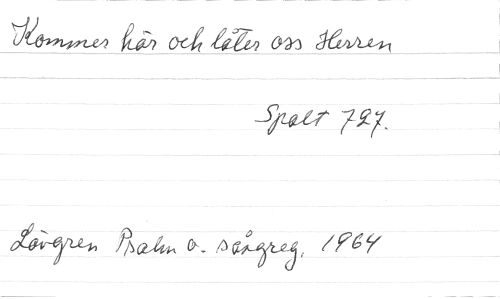 Kommer här och låter oss Herren
Spalt 727.
Lövgren Psalm o. sångreg. 1964